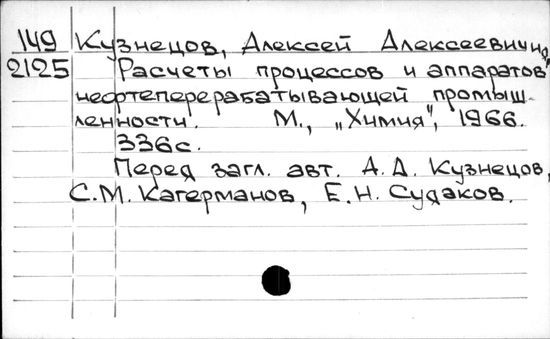 149 Кузнецов, Алексей Алексеевич и др.
2125 "Расчеты процессов и аппаратов
нефтеперерабатывающей промыш-
ленности". М., „Химия", 1966.
336с.
Перед загл. авт. А.А. Кузнецов,
С.М. Кагерманов, Е.Н. Судаков.